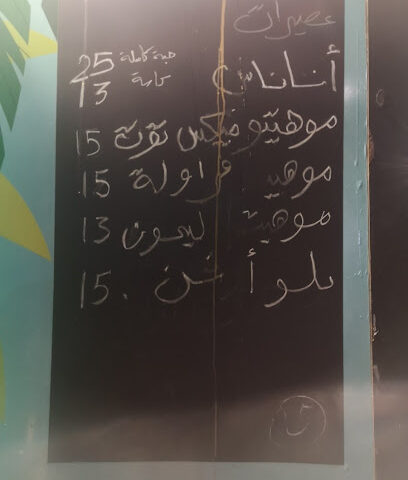 عصيرات
أناناس حبة كاملة 25
كاسة 13
موهيتو ميكس توت 15
موهيتو فراولة 15
موهيتو ليمون 13
بلو أشن 15.